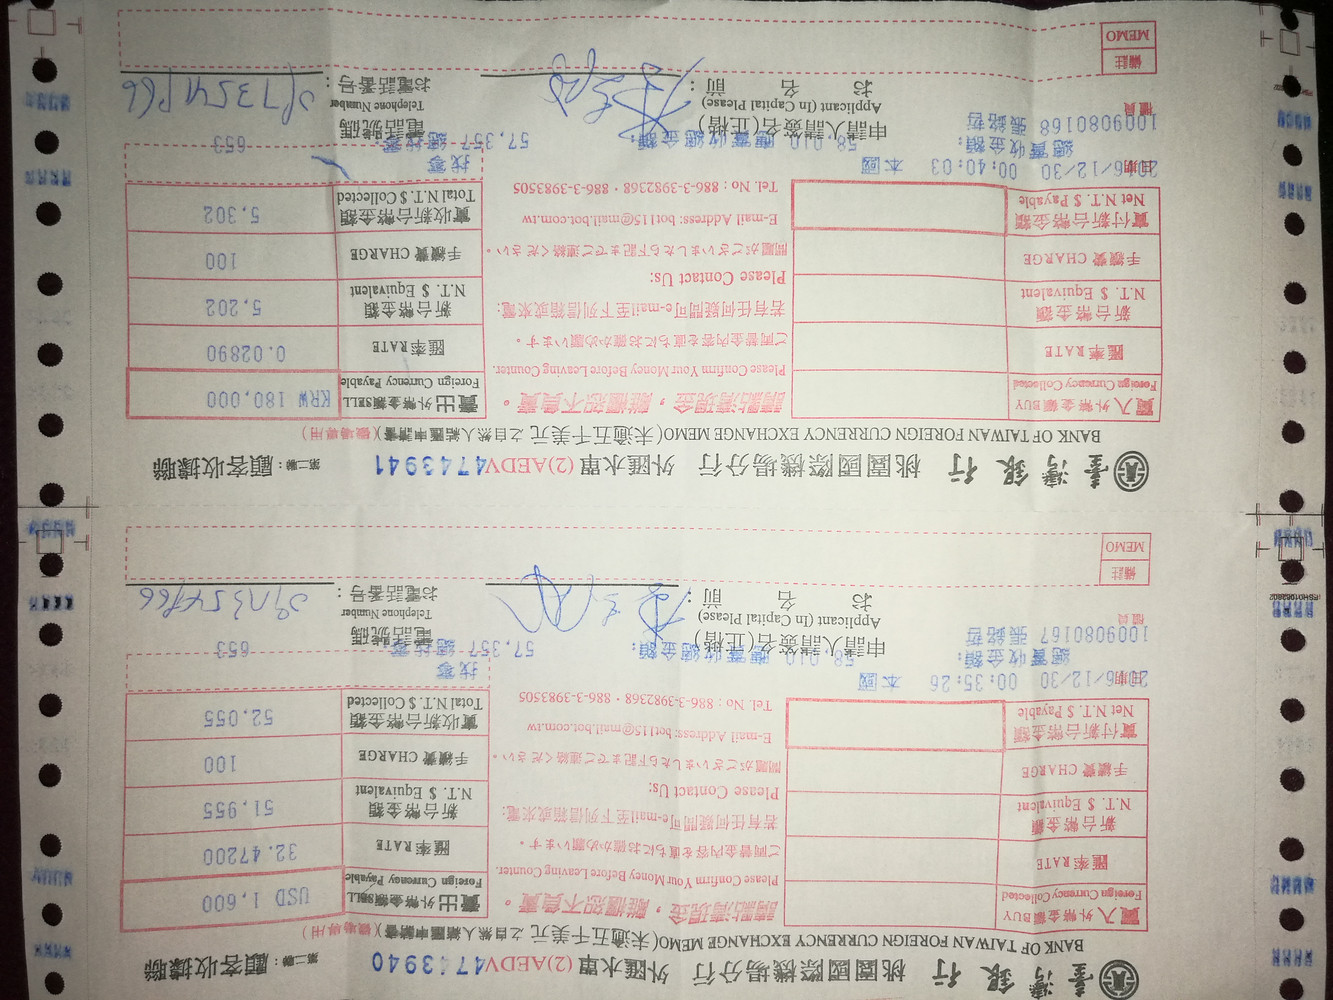 臺灣銀行 桃園國際機場分行 外匯水單 (2)AEDV4743940 第二聯：顧客收據聯
BANK OF TAIWAN FOREIGN CURRENCY EXCHANGE MEMO(未逾五千美元之自然人結匯申請書)(機場專用)
買入外幣金額BUY
Foreign Currency Collected
請點清現金，離櫃恕不負責。
Please Confirm Your Money Before Leaving Counter.
ご両替金内容を直ちにお確かめ願います。
賣出外幣金額SELL
Foreign Currency Payable
USD 1,600
匯率RATE
匯率RATE
32.47200
新台幣金額
N.T. $ Equivalent
若有任何疑問可e-mail至下列信箱或來電:
Please Contact Us:
新台幣金額
N.T. $ Equivalent
51,955
手續費 CHARGE
問題がございましたら下記までご連絡ください。
手續費 CHARGE
100
實付新台幣金額
Net N.T. $ Payable
E-mail Address: bot115@mail.bot.com.tw
Tel. No : 886-3-3982368・886-3-3983505
實收新台幣金額
Total N.T. $ Collected
52,055
日期
2016/12/30 00:35:26 本國
找零
總實收金額: 58,010 應實收總金額: 57,357 總找零 653
1009080167 張銘哲
櫃員
申請人請簽名(正楷)
Applicant (In Capital Please)
お名前：
電話號碼
Telephone Number
お電話番号：
備註
MEMO
臺灣銀行 桃園國際機場分行 外匯水單 (2)AEDV4743941 第二聯：顧客收據聯
BANK OF TAIWAN FOREIGN CURRENCY EXCHANGE MEMO(未逾五千美元之自然人結匯申請書)(機場專用)
買入外幣金額BUY
Foreign Currency Collected
請點清現金，離櫃恕不負責。
Please Confirm Your Money Before Leaving Counter.
ご両替金内容を直ちにお確かめ願います。
賣出外幣金額SELL
Foreign Currency Payable
KRW 180,000
匯率RATE
匯率RATE
0.02890
新台幣金額
N.T. $ Equivalent
若有任何疑問可e-mail至下列信箱或來電:
Please Contact Us:
新台幣金額
N.T. $ Equivalent
5,202
手續費 CHARGE
問題がございましたら下記までご連絡ください。
手續費 CHARGE
100
實付新台幣金額
Net N.T. $ Payable
E-mail Address: bot115@mail.bot.com.tw
Tel. No : 886-3-3982368・886-3-3983505
實收新台幣金額
Total N.T. $ Collected
5,302
日期
2016/12/30 00:40:03 本國
找零
總實收金額: 58,010 應實收總金額: 57,357 總找零 653
1009080168 張銘哲
櫃員
申請人請簽名(正楷)
Applicant (In Capital Please)
お名前：
電話號碼
Telephone Number
お電話番号：
備註
MEMO